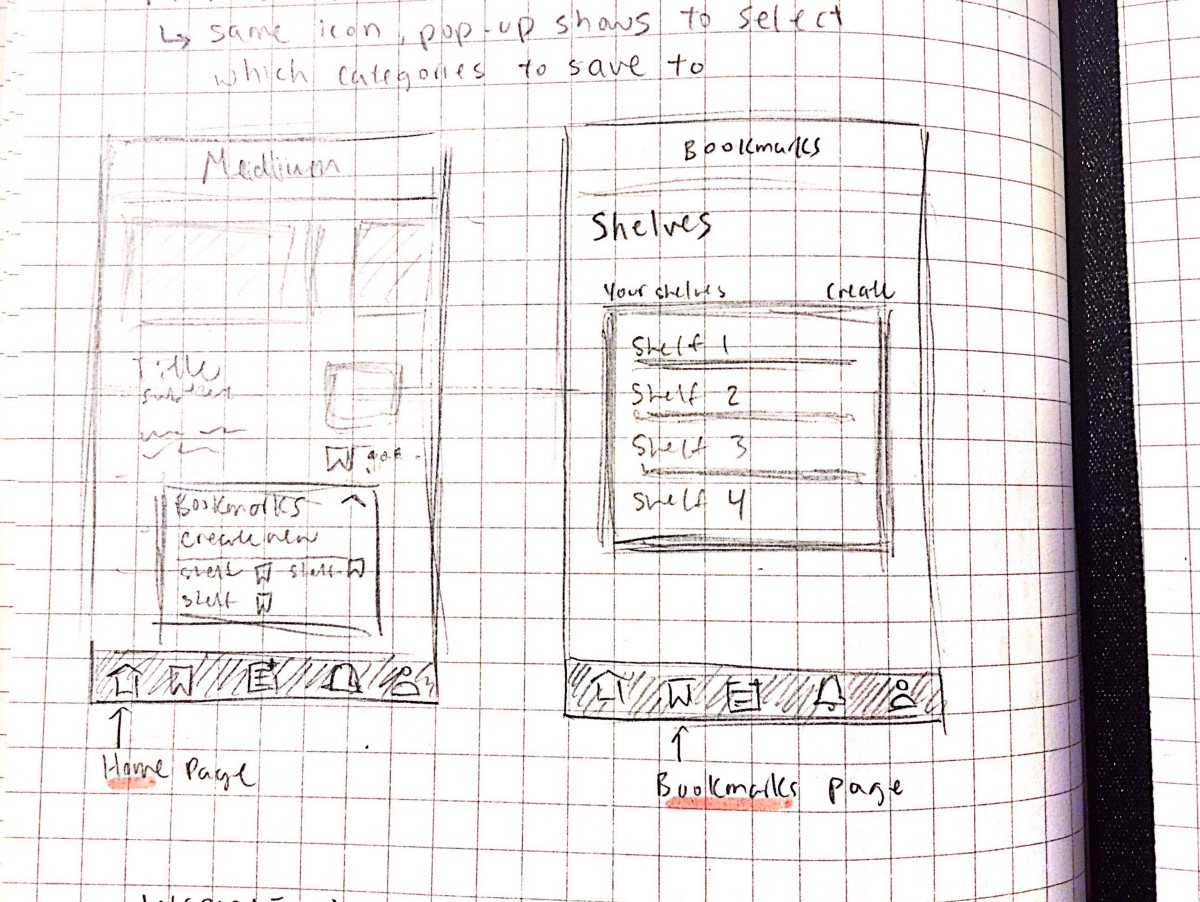 ↳ same icon, pop-up shows to select
which categories to save to
Medium
Title
Bookmarks
create new
shelf shelf
shelf
Home Page
Bookmarks
Shelves
Your shelves Create
Shelf 1
Shelf 2
Shelf 3
Shelf 4
Bookmarks page